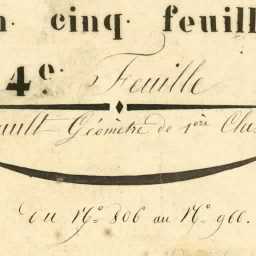 n cinq feuill
4e. Feuille
ault Géomètre de 1ère Clas
du No. 806 au No. 900.